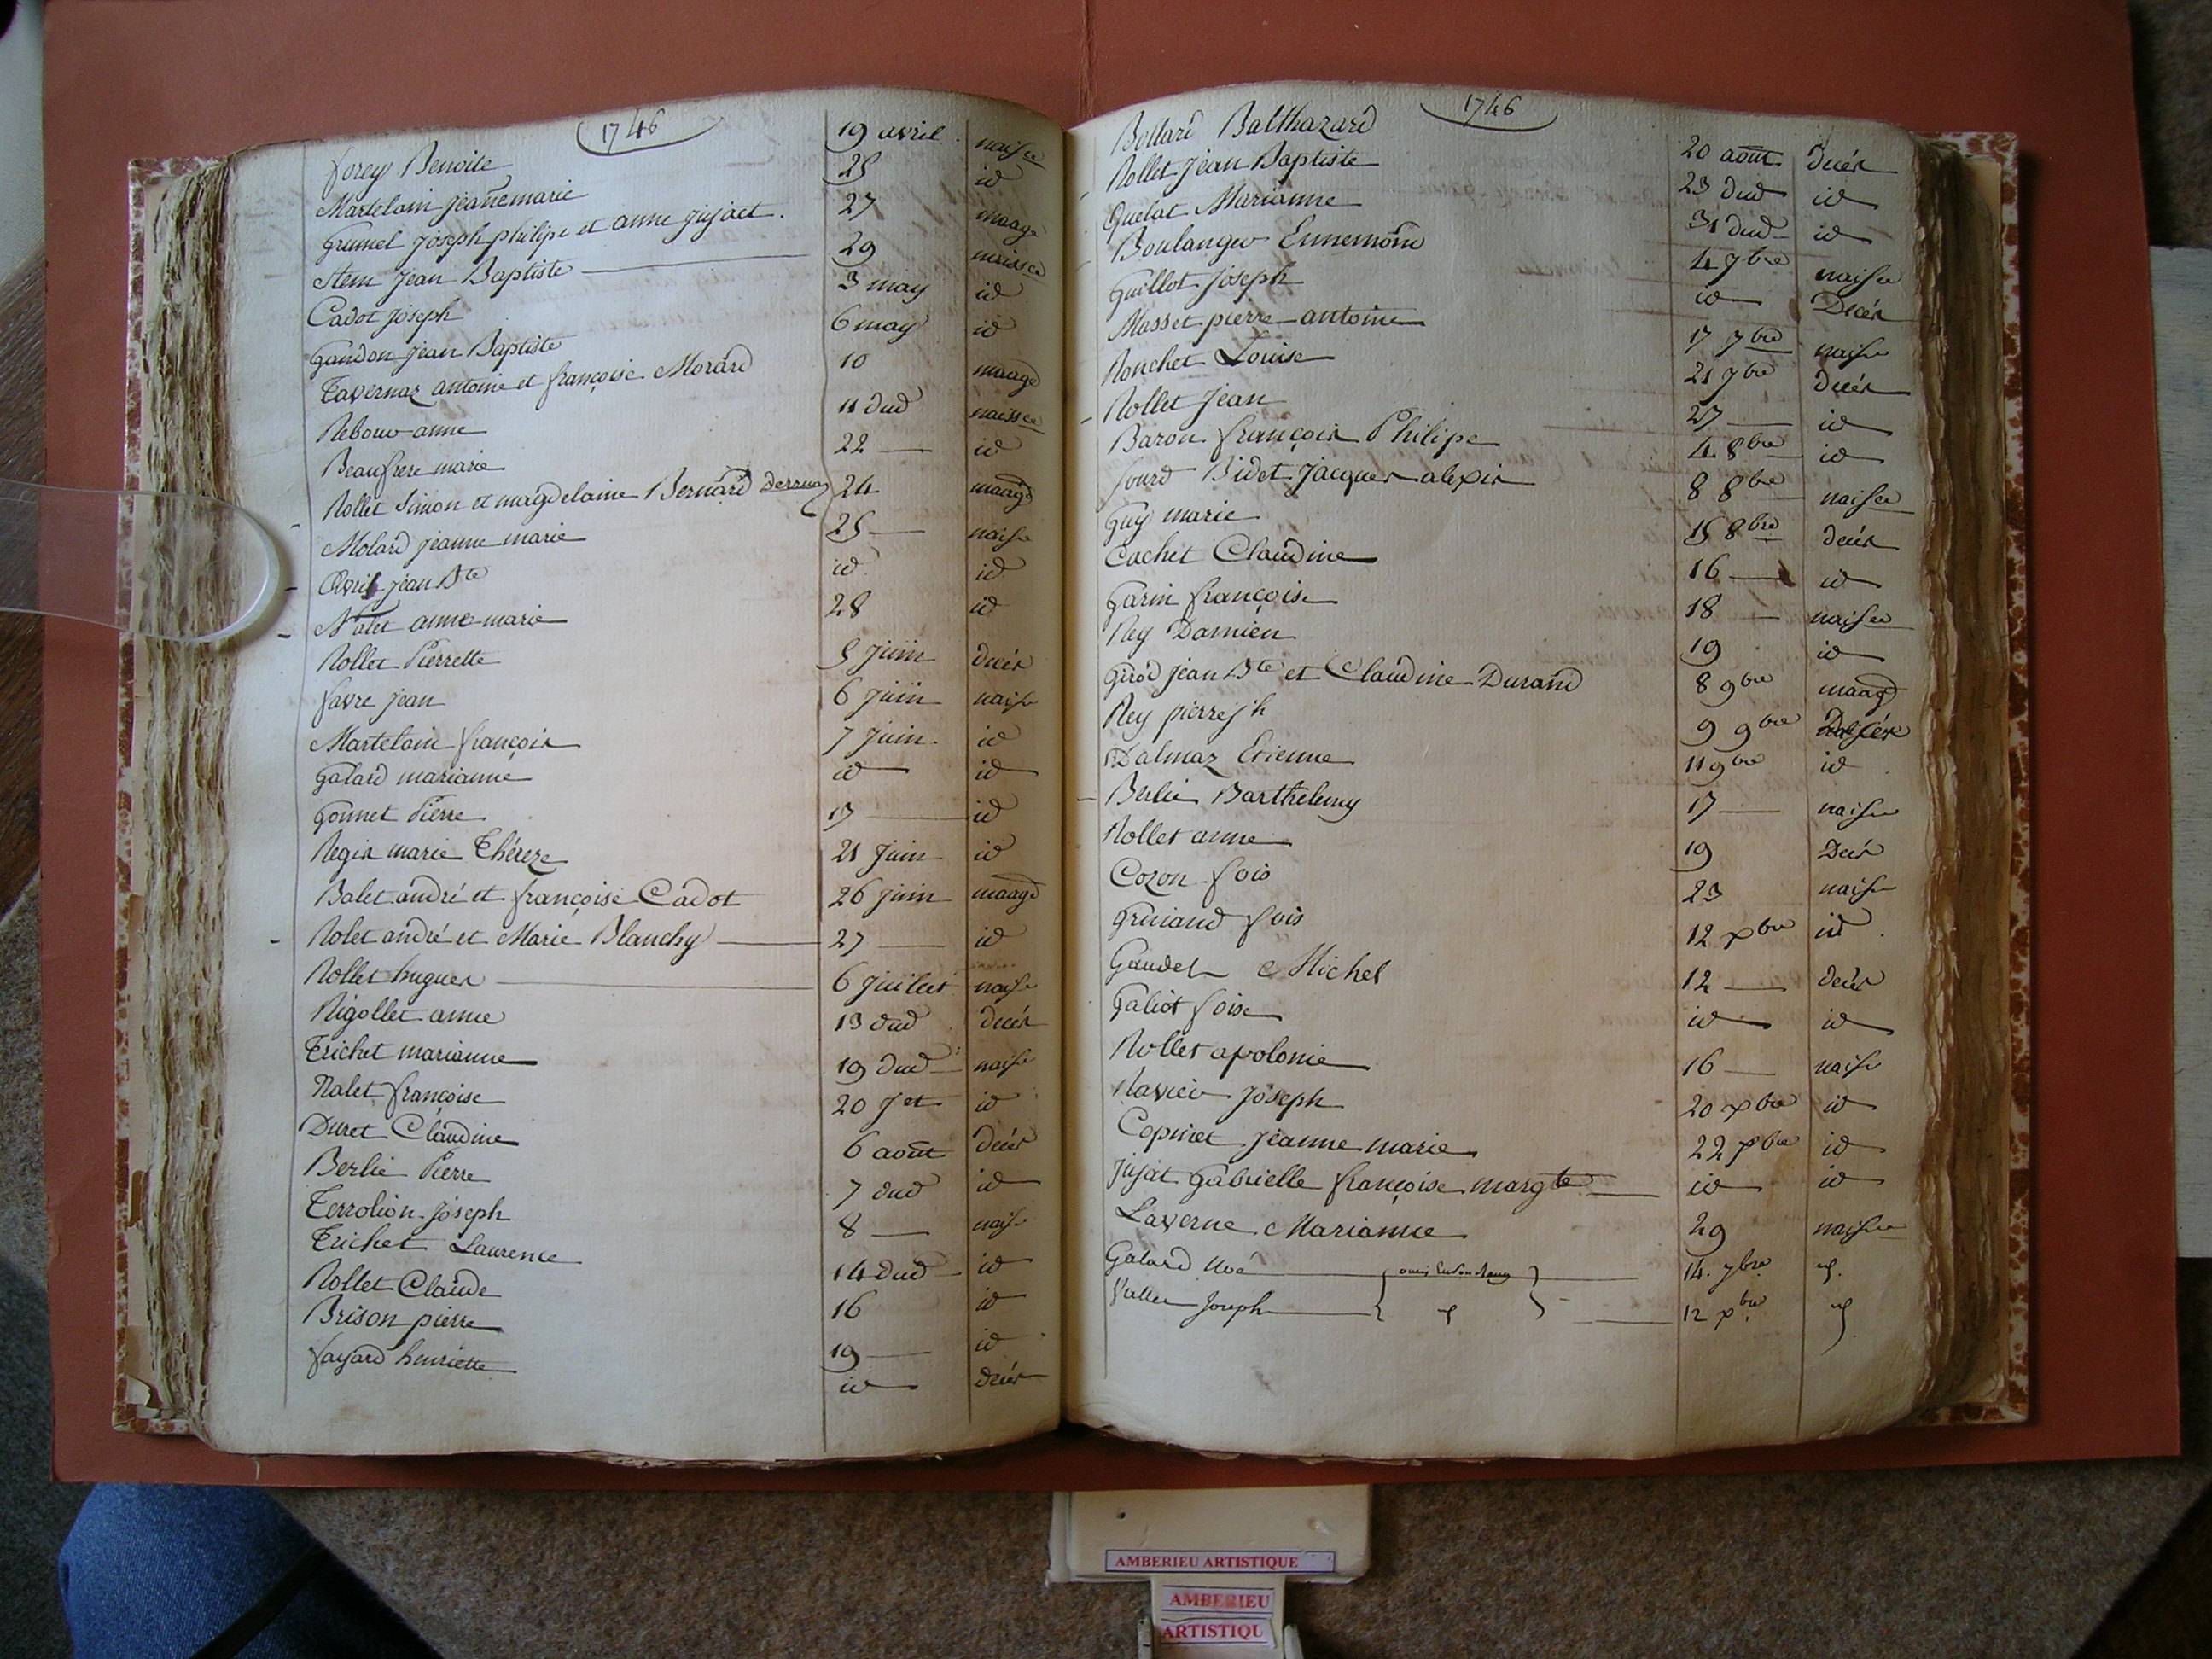 1746
forey Benoite 19 avril naisce
Martelain jeanemarie 25 id
Grumel joseph philipe et anne jujact. 27 maage
Stem jean Baptiste 29 naissce
Cadot joseph 3 may id
Gandon jean Baptiste 6 may id
Tavernaz antoine et françoise Morard 10 maage
Rebour anne 11 dud naissce
Beaufrere marie 22 id
Rollet Simon et magdelaine Bernard 24 maage
Molard jeanne marie 25 naisce
Avril jean Bte id id
Nalet anne marie 28 id
Rollet Pierrette 5 juin decés
favre jean 6 juin naisce
Martelain françois 7 juin id
Galard marianne id id
Gonnet Pierre 17 id
Regis marie Théreze 21 juin id
Balet andré et françoise Cadot 26 juin maage
Rolet andré et Marie Blanchy 27 id
Rollet hugues 6 juillet naisce
Rigollet anne 13 dud decés
Trichet marianne 19 dud naisce
Nalet françoise 20 jet id
Duret Claudine 6 août decés
Berlie Pierre 7 dud id
Terrolion joseph 8 naisce
Trichet Laurence 14 dud id
Rollet Claude 16 id
Brison pierre 19 id
fayard henriette id decés
1746
Bollard Balthazard 20 août Decés
Rollet jean Baptiste 23 dud id
Quelat Marianne 31 dud id
Boulanger Ennemond 4 7bre naisce
Guillot joseph id Decés
Masset pierre antoine 17 7bre naisce
Ronchet Louise 21 7bre decés
Rollet jean 27 id
Baron françois Philipe 4 8bre id
Jourd Bidet jacques alexis 8 8bre naisce
Guy marie 15 8bre decés
Cachet Claudine 16 id
Garin françoise 18 naisce
Rey Damien 19 id
Girod jean Bte et Claudine Durand 8 9bre maage
Rey pierre jh 9 9bre
Dalmaz Etienne 11 9bre id
Berlie Barthelemy 17 naisce
Rollet anne 19 Decés
Cozon fois 23 naisce
Gruiand fois 12 xbre id
Gaudet Michel 12 decés
Galiot foise id id
Rollet apolonie 16 naisce
Ravier joseph 20 xbre id
Copinet jeanne marie 22 xbre id
Jujat Gabrielle françoise margte id id
Laverne Marianne 29 naisce
Galard 14. 7bre
Joseph 12 xbre
AMBERIEU ARTISTIQUE
AMBERIEU
ARTISTIQU